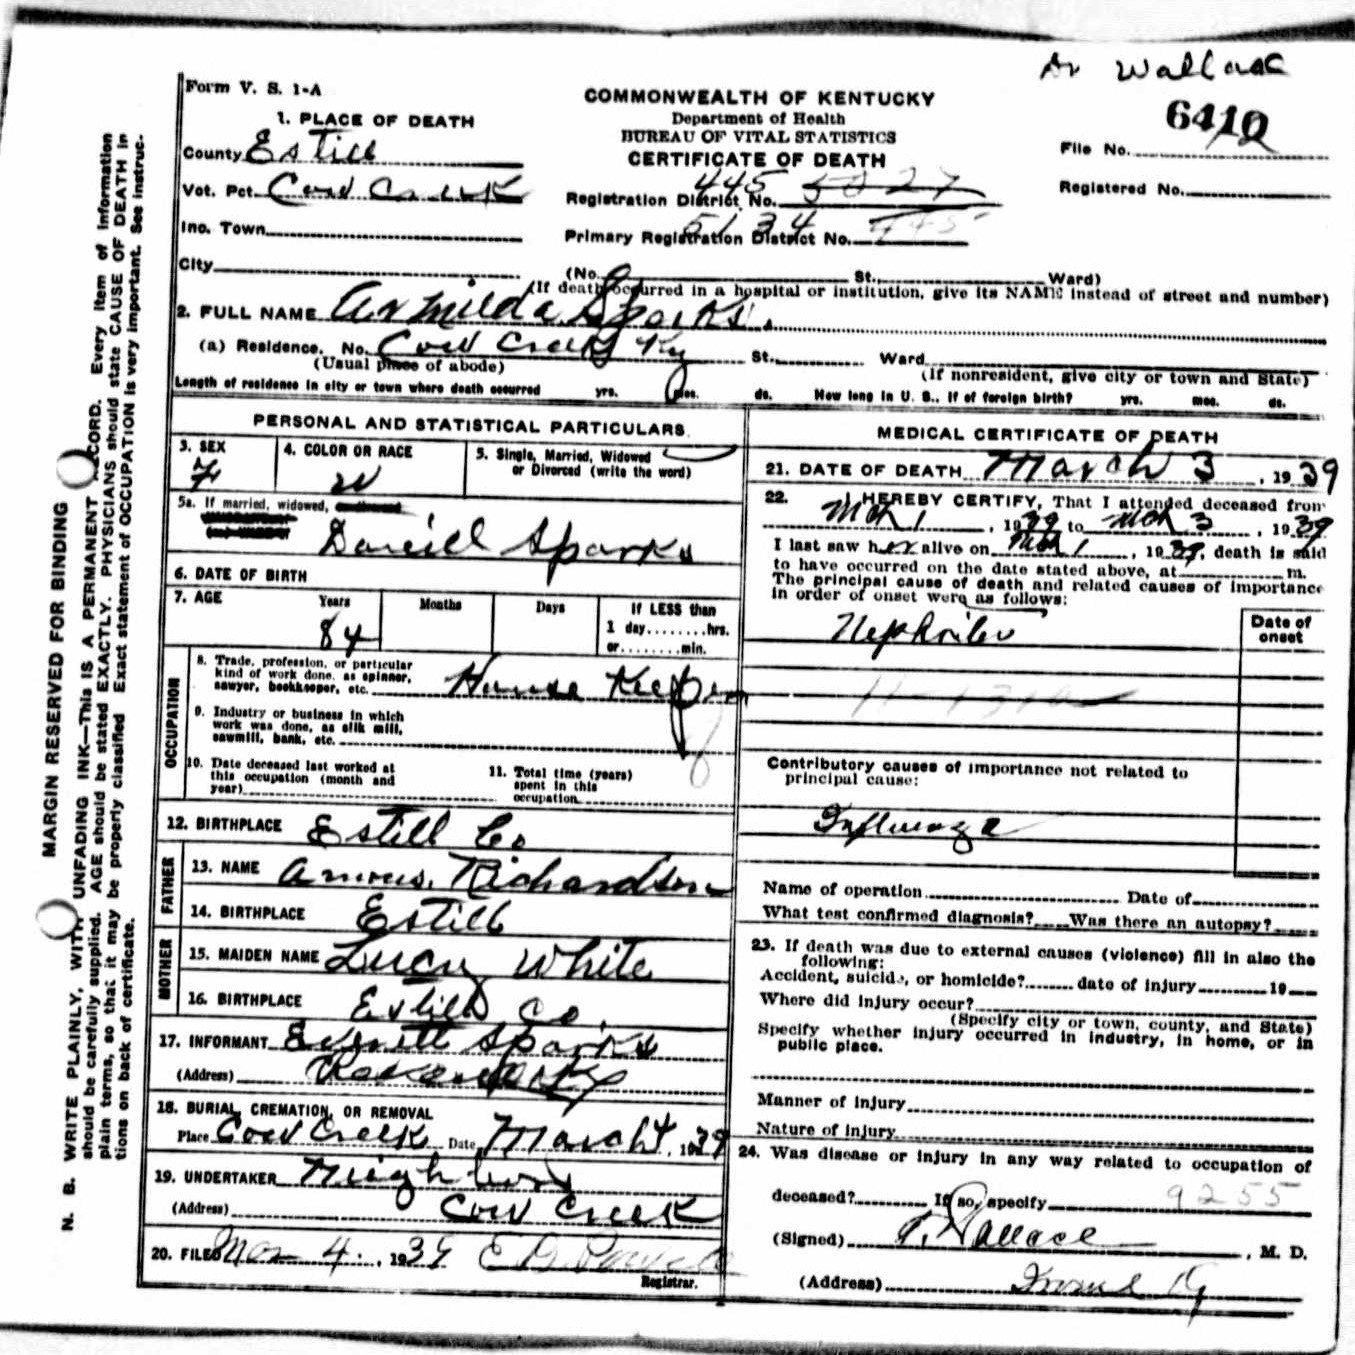 Dr Wallace
Form V. S. 1-A
COMMONWEALTH OF KENTUCKY
Department of Health
BUREAU OF VITAL STATISTICS
CERTIFICATE OF DEATH
6410
12
File No.
Registered No.
1. PLACE OF DEATH
County Estill
Vot. Pct. Cow Creek
Inc. Town
City
445 5027
Registration District No.
5134 445
Primary Registration District No.
(No. St., Ward)
(If death occurred in a hospital or institution, give its NAME instead of street and number)
2. FULL NAME Armilda Sparks.
(a) Residence. No. Cow Creek Ky St. Ward
(Usual place of abode) (If nonresident, give city or town and State)
Length of residence in city or town where death occurred yrs. mos. ds. How long in U. S., if of foreign birth? yrs. mos. ds.
PERSONAL AND STATISTICAL PARTICULARS
3. SEX
F
4. COLOR OR RACE
W
5. Single, Married, Widowed
or Divorced (write the word)
5a. If married, widowed,
Daniell Sparks
6. DATE OF BIRTH
7. AGE Years Months Days If LESS than
84
1 day........hrs.
or........min.
OCCUPATION
8. Trade, profession, or particular
kind of work done, as spinner,
sawyer, bookkeeper, etc. House Keeper
9. Industry or business in which
work was done, as silk mill,
sawmill, bank, etc.
10. Date deceased last worked at
this occupation (month and
year)
11. Total time (years)
spent in this
occupation
12. BIRTHPLACE Estill Co
FATHER
13. NAME Amous. Richardson
14. BIRTHPLACE Estill
MOTHER
15. MAIDEN NAME Lucy White
16. BIRTHPLACE Estill Co.
17. INFORMANT Everett Sparks
(Address) Ky
18. BURIAL, CREMATION, OR REMOVAL
Place Cow Creek Date March 4, 1939
19. UNDERTAKER Neighbors
(Address) Cow Creek
20. FILED Mar 4, 1939 E D
Registrar.
MEDICAL CERTIFICATE OF DEATH
21. DATE OF DEATH March 3, 1939
22. I HEREBY CERTIFY, That I attended deceased from
Mch 1, 1939 to Mch 3, 1939
I last saw her alive on Mch 1, 1939, death is said
to have occurred on the date stated above, at m.
The principal cause of death and related causes of importance
in order of onset were as follows:
Date of
onset
Nephritis
Contributory causes of importance not related to
principal cause:
Influenza
Name of operation Date of
What test confirmed diagnosis? Was there an autopsy?
23. If death was due to external causes (violence) fill in also the
following:
Accident, suicide, or homicide? date of injury 19
Where did injury occur?
(Specify city or town, county, and State)
Specify whether injury occurred in industry, in home, or in
public place.
Manner of injury
Nature of injury
24. Was disease or injury in any way related to occupation of
deceased? If so, specify 9255
(Signed) Wallace, M. D.
(Address) Irvine Ky
MARGIN RESERVED FOR BINDING
N. B. WRITE PLAINLY, WITH UNFADING INK—This IS A PERMANENT RECORD. Every item of information
should be carefully supplied. AGE should be stated EXACTLY. PHYSICIANS should state CAUSE OF DEATH in
plain terms, so that it may be properly classified. Exact statement of OCCUPATION is very important. See instruc-
tions on back of certificate.